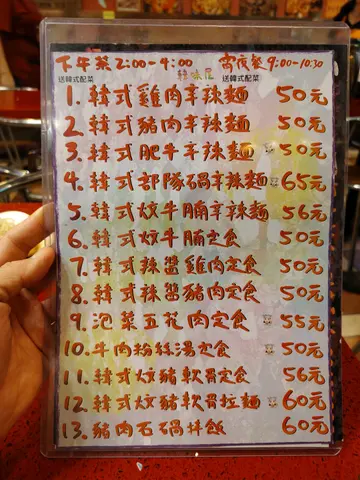 下午茶 2:00-4:00 宵夜餐 9:00-10:30
送韓式配菜 辣味屋 送韓式配菜
1. 韓式雞肉辛辣麵 50元
2. 韓式豬肉辛辣麵 50元
3. 韓式肥牛辛辣麵 50元
4. 韓式部隊鍋辛辣麵 65元
5. 韓式炆牛腩辛辣麵 56元
6. 韓式炆牛腩定食 50元
7. 韓式辣醬雞肉定食 50元
8. 韓式辣醬豬肉定食 50元
9. 泡菜五花肉定食 55元
10. 牛肉粉絲湯定食 50元
11. 韓式炆豬軟骨定食 56元
12. 韓式炆豬軟骨拉麵 60元
13. 豬肉石鍋拌飯 60元